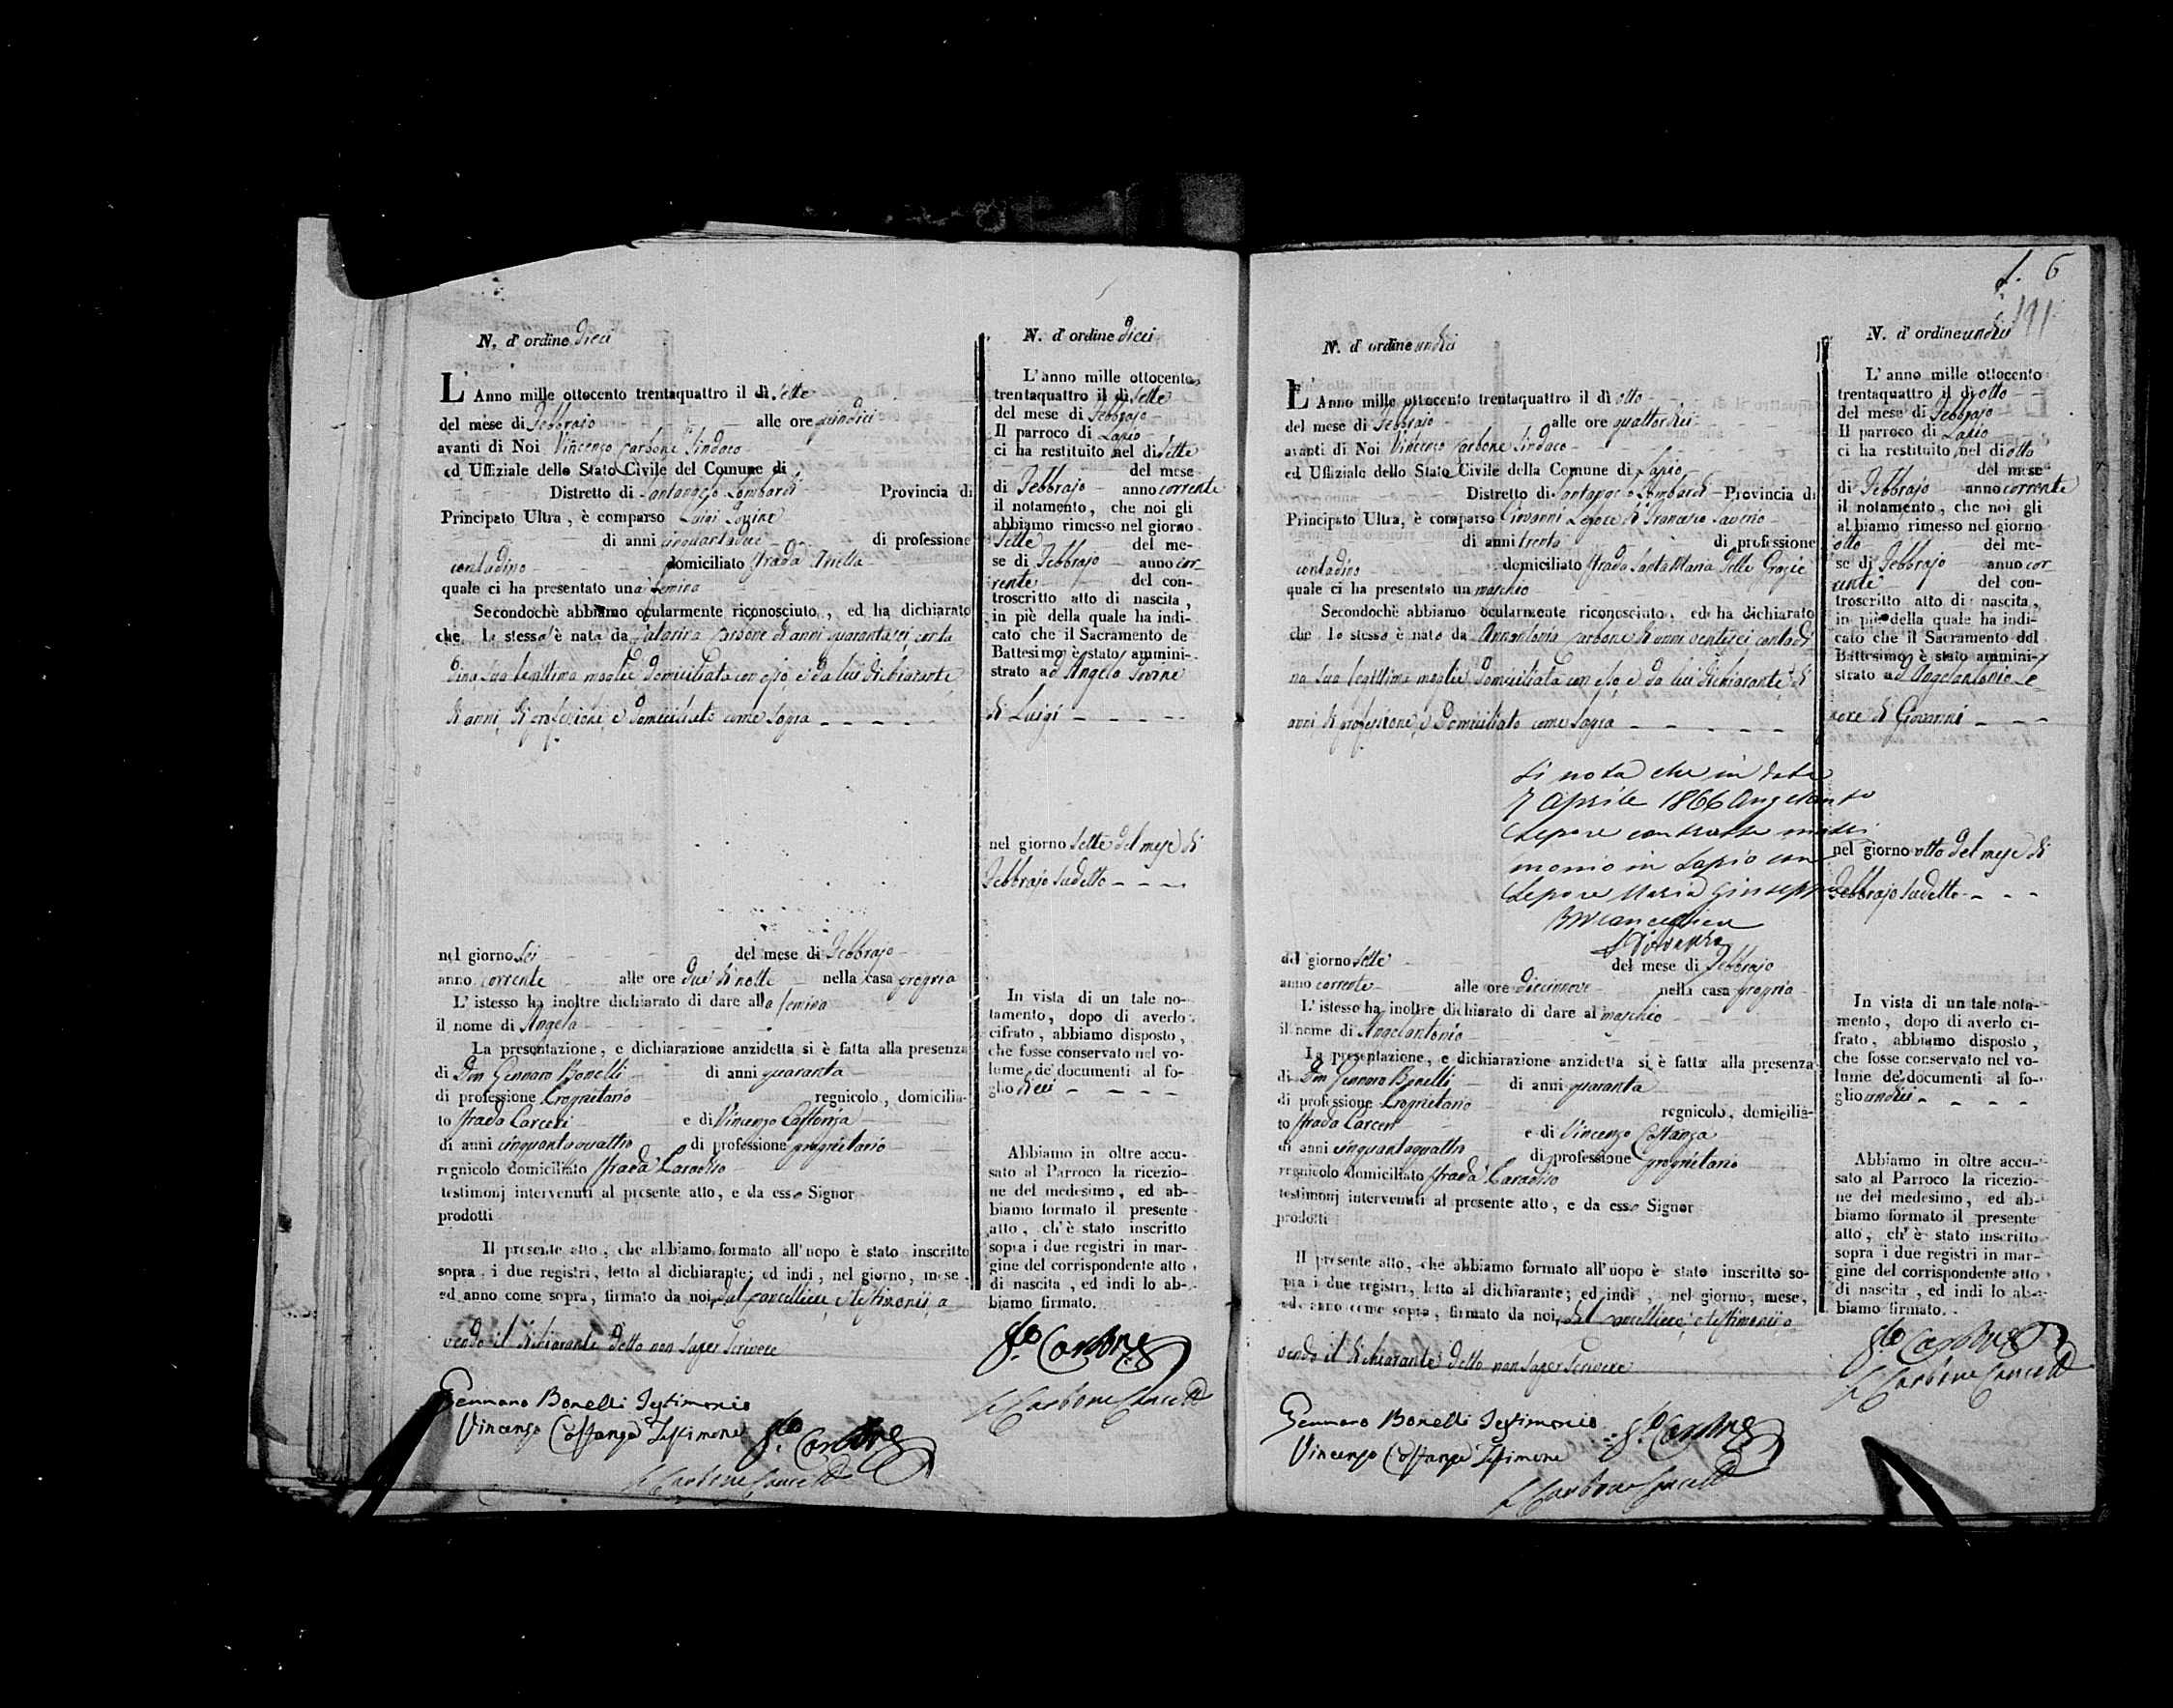 N. d' ordine dieci
L' Anno mille ottocento trentaquattro il dì sette
del mese di Febbrajo alle ore quindici
avanti di Noi Vincenzo Carbone Sindaco
ed Uffiziale dello Stato Civile del Comune di
Distretto di Santangelo Lombardi Provincia di
Principato Ultra, è comparso Luigi Iovine
di anni di professione
contadino domiciliato strada
quale ci ha presentato una femina
Secondochè abbiamo ocularmente riconosciuto, ed ha dichiarato
che la stessa è nata da Catarina Carbone di anni quarantasei conta
dina sua legittima moglie domiciliata con esso, e da lui dichiarante
di anni, di professione, e domiciliato come sopra
nel giorno sei del mese di Febbrajo
anno corrente alle ore due di notte nella casa propria
L' istesso ha inoltre dichiarato di dare alla femina
il nome di Angela
La presentazione, e dichiarazione anzidetta si è fatta alla presenza
di Don Gennaro Bonelli di anni quaranta
di professione Proprietario regnicolo, domicilia-
to strada Carceri e di Vincenzo Costanza
di anni cinquantaquattro di professione proprietario
regnicolo domiciliato strada Paradiso
testimonj intervenuti al presente atto, e da esso Signor
prodotti
Il presente atto, che abbiamo formato all' uopo è stato inscritto
sopra i due registri, letto al dichiarante; ed indi, nel giorno, mese
ed anno come sopra, firmato da noi, dal Cancelliere, e testimonii, a
vendo il dichiarante detto non saper scrivere
Gennaro Bonelli Testimonio
Vincenzo Costanza Testimone Sco Carbone
Carbone Cancell
N. d' ordine dieci
L'anno mille ottocento
trentaquattro il dì sette
del mese di Febbrajo
Il parroco di Lapio
ci ha restituito nel dì sette
del mese
di Febbrajo anno corrente
il notamento, che noi gli
abbiamo rimesso nel giorno
sette del me-
se di Febbrajo anno cor-
rente del con-
troscritto atto di nascita,
in piè della quale ha indi-
cato che il Sacramento de
Battesimo è stato ammini-
strato ad Angela Iovine
di Luigi
nel giorno sette del mese di
Febbrajo sudetto
In vista di un tale no-
tamento, dopo di averlo
cifrato, abbiamo disposto,
che fosse conservato nel vo-
lume de' documenti al fo-
glio dieci
Abbiamo in oltre accu-
sato al Parroco la ricezio-
ne del medesimo, ed ab-
biamo formato il presente
atto, ch' è stato inscritto
sopra i due registri in mar-
gine del corrispondente atto
di nascita, ed indi lo ab-
biamo firmato.
Sco Carbone
Carbone Cancell
f. 6
191
N. d' ordine undici
L' Anno mille ottocento trentaquattro il dì otto
del mese di Febbrajo alle ore quattordici
avanti di Noi Vincenzo Carbone Sindaco
ed Uffiziale dello Stato Civile della Comune di Lapio
Distretto di Santangelo Lombardi Provincia di
Principato Ultra, è comparso Giovanni Lepore di Francesco Saverio
di anni trenta di professione
contadino domiciliato strada Santa Maria delle Grazie
quale ci ha presentato un maschio
Secondochè abbiamo ocularmente riconosciuto, ed ha dichiarato
che lo stesso è nato da Annantonia Carbone di anni ventisei contadi
na sua legittima moglie domiciliata con esso, e da lui dichiarante di
anni di professione, e domiciliato come sopra
Si nota che in data
7 Aprile 1866 Angelanto
Lepore contrasse matri
monio in Lapio con
Lepore Maria Giuseppa
del giorno sette del mese di Febbrajo
anno corrente alle ore diecinnove nella casa propria
L' istesso ha inoltre dichiarato di dare al maschio
il nome di Angelantonio
La presentazione, e dichiarazione anzidetta si è fatta alla presenza
di Don Gennaro Bonelli di anni quaranta
di professione Proprietario regnicolo, domicilia-
to strada Carceri e di Vincenzo Costanza
di anni cinquantaquattro di professione proprietario
regnicolo domiciliato strada Paradiso
testimonj intervenuti al presente atto, e da esso Signor
prodotti
Il presente atto, che abbiamo formato all'uopo è stato inscritto so-
pra i due registri, letto al dichiarante; ed indi, nel giorno, mese,
ed anno come sopra, firmato da noi, dal Cancelliere, e testimonii, a
vendo il dichiarante detto non saper scrivere
Gennaro Bonelli Testimonio Sco Carbone
Vincenzo Costanza Testimone
Carbone Cancell
N. d' ordine undici
L' anno mille ottocento
trentaquattro il dì otto
del mese di Febbrajo
Il parroco di Lapio
ci ha restituito nel dì otto
del mese
di Febbrajo anno corrente
il notamento, che noi gli
abbiamo rimesso nel giorno
otto del me-
se di Febbrajo anno cor-
rente del con-
troscritto atto di nascita,
in piè della quale ha indi-
cato che il Sacramento del
Battesimo è stato ammini-
strato ad Angelantonio Le-
pore di Giovanni
nel giorno otto del mese di
Febbrajo sudetto
In vista di un tale nota-
mento, dopo di averlo ci-
frato, abbiamo disposto,
che fosse conservato nel vo-
lume de' documenti al fo-
glio undici
Abbiamo in oltre accu-
sato al Parroco la ricezio-
ne del medesimo, ed ab-
biamo formato il presente
atto, ch' è stato inscritto
sopra i due registri in mar-
gine del corrispondente atto
di nascita, ed indi lo ab-
biamo firmato.
Sco Carbone
Carbone Cancell